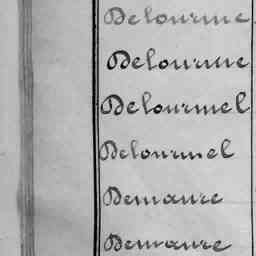 Delourme
Delourme
Delourmel
Delourmel
Demaure
Demaure